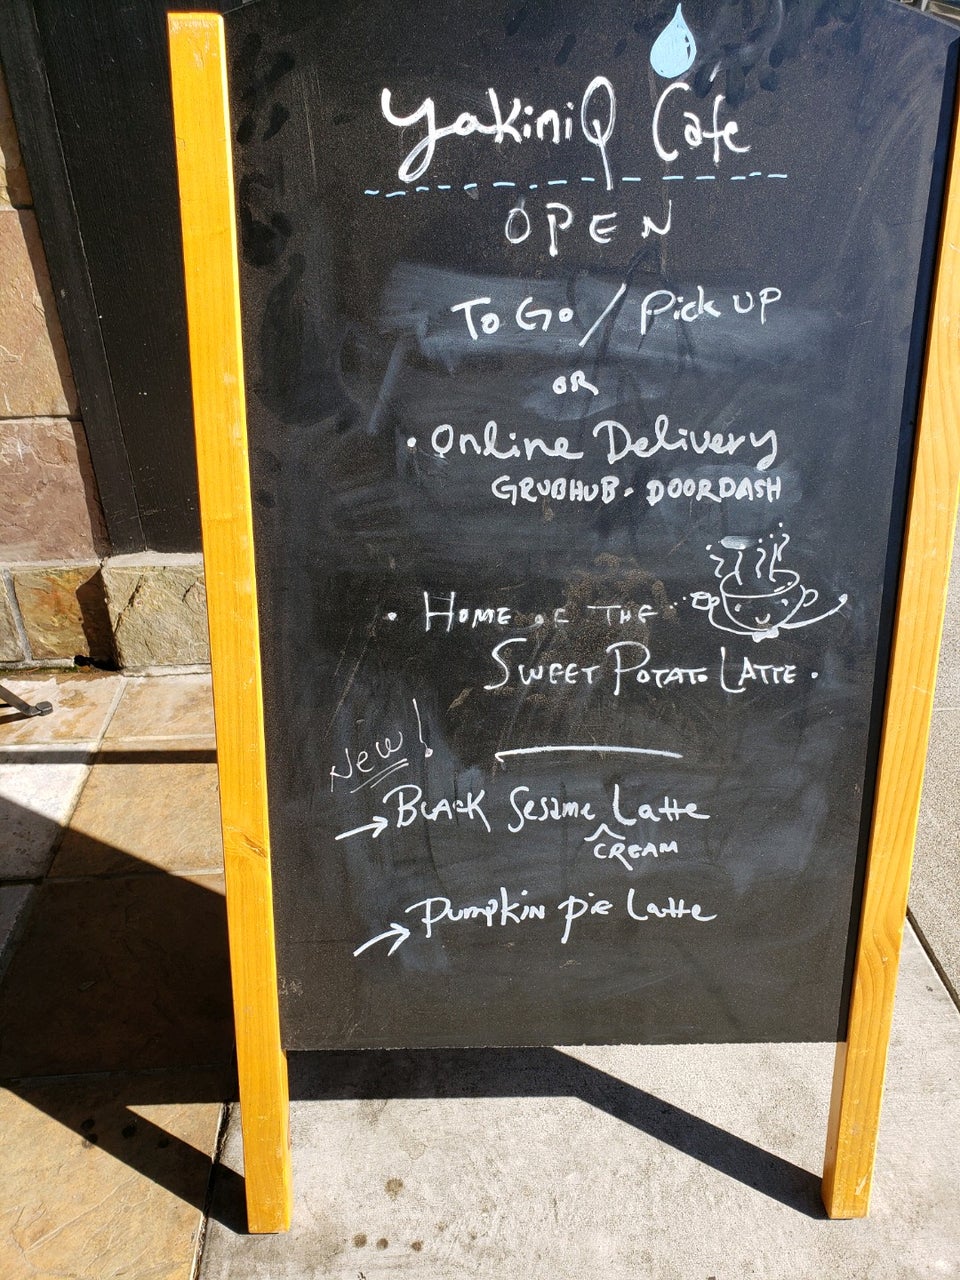 YakiniQ Café
OPEN
To Go / Pick UP
OR
• Online Delivery
GRUBHUB • DOORDASH
• HOME OF THE
SWEET POTATO LATTE •
New!
→ BLACK Sesame Latte
^ CREAM
→ Pumpkin pie Latte